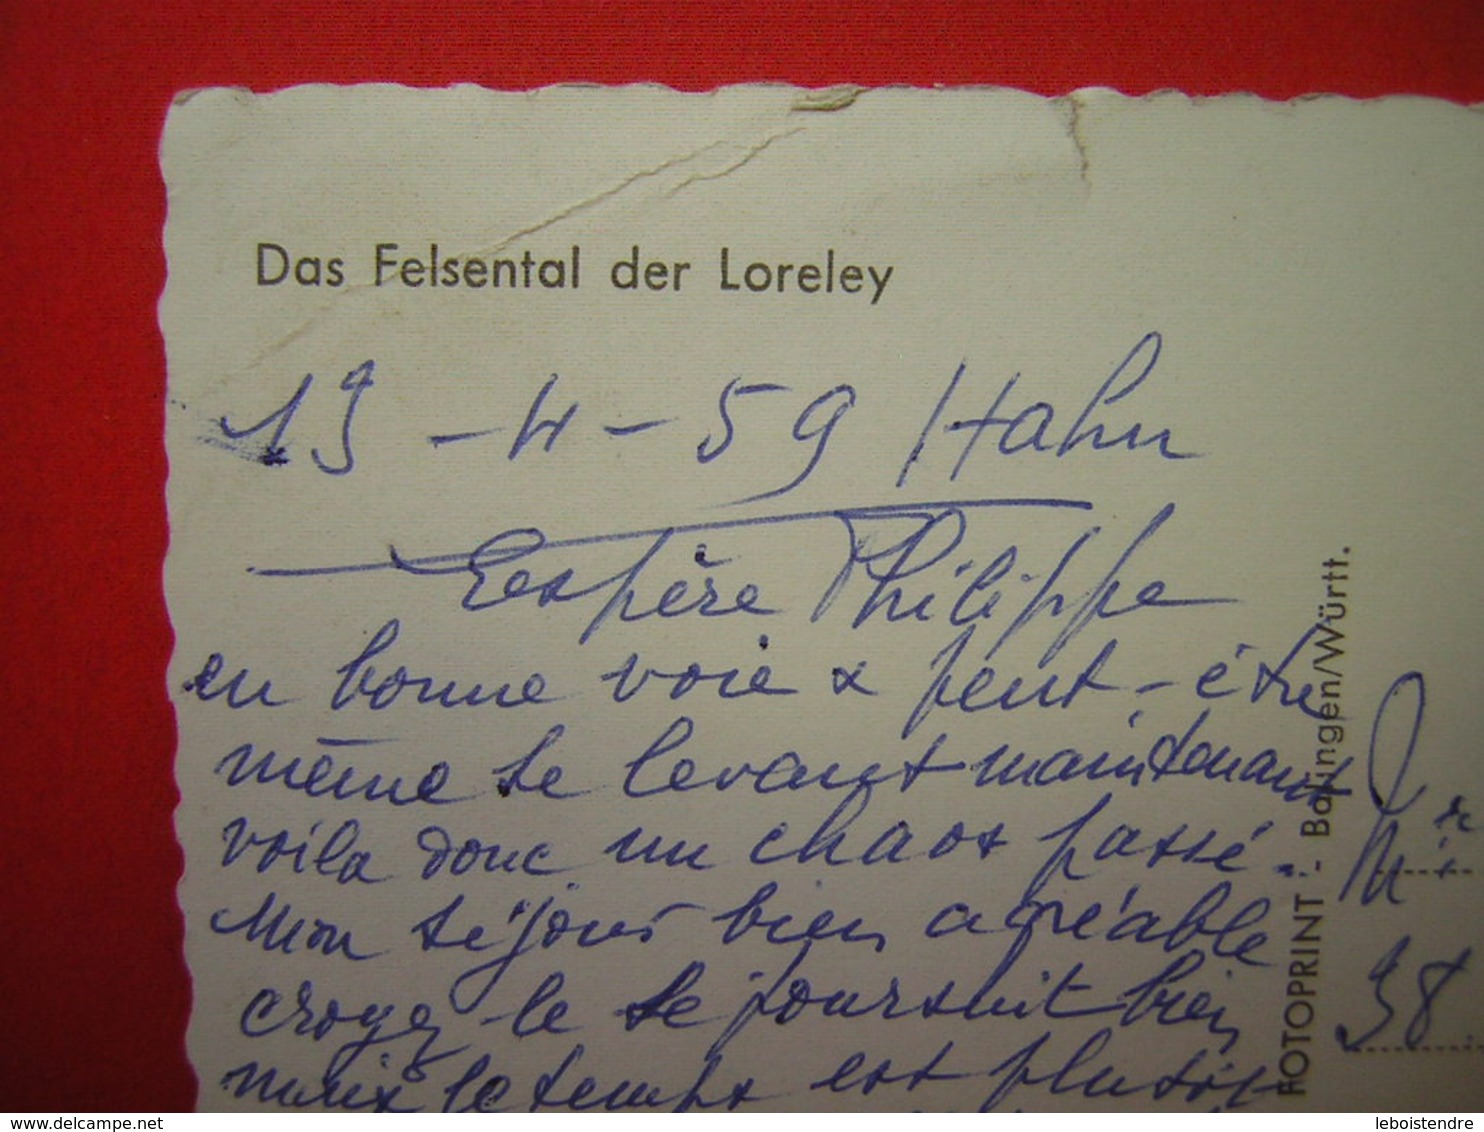 Das Felsental der Loreley
19-4-59 Hahn
Espère Philippe
en bonne voie & peut-être
même se levant maintenant
voila donc un chaos passé.
Mon séjour bien agréable
croyez-le se poursuit bien
mais le temps est plutôt
FOTOPRINT - Balingen/Württ.
38
delcampe.net
leboistendre